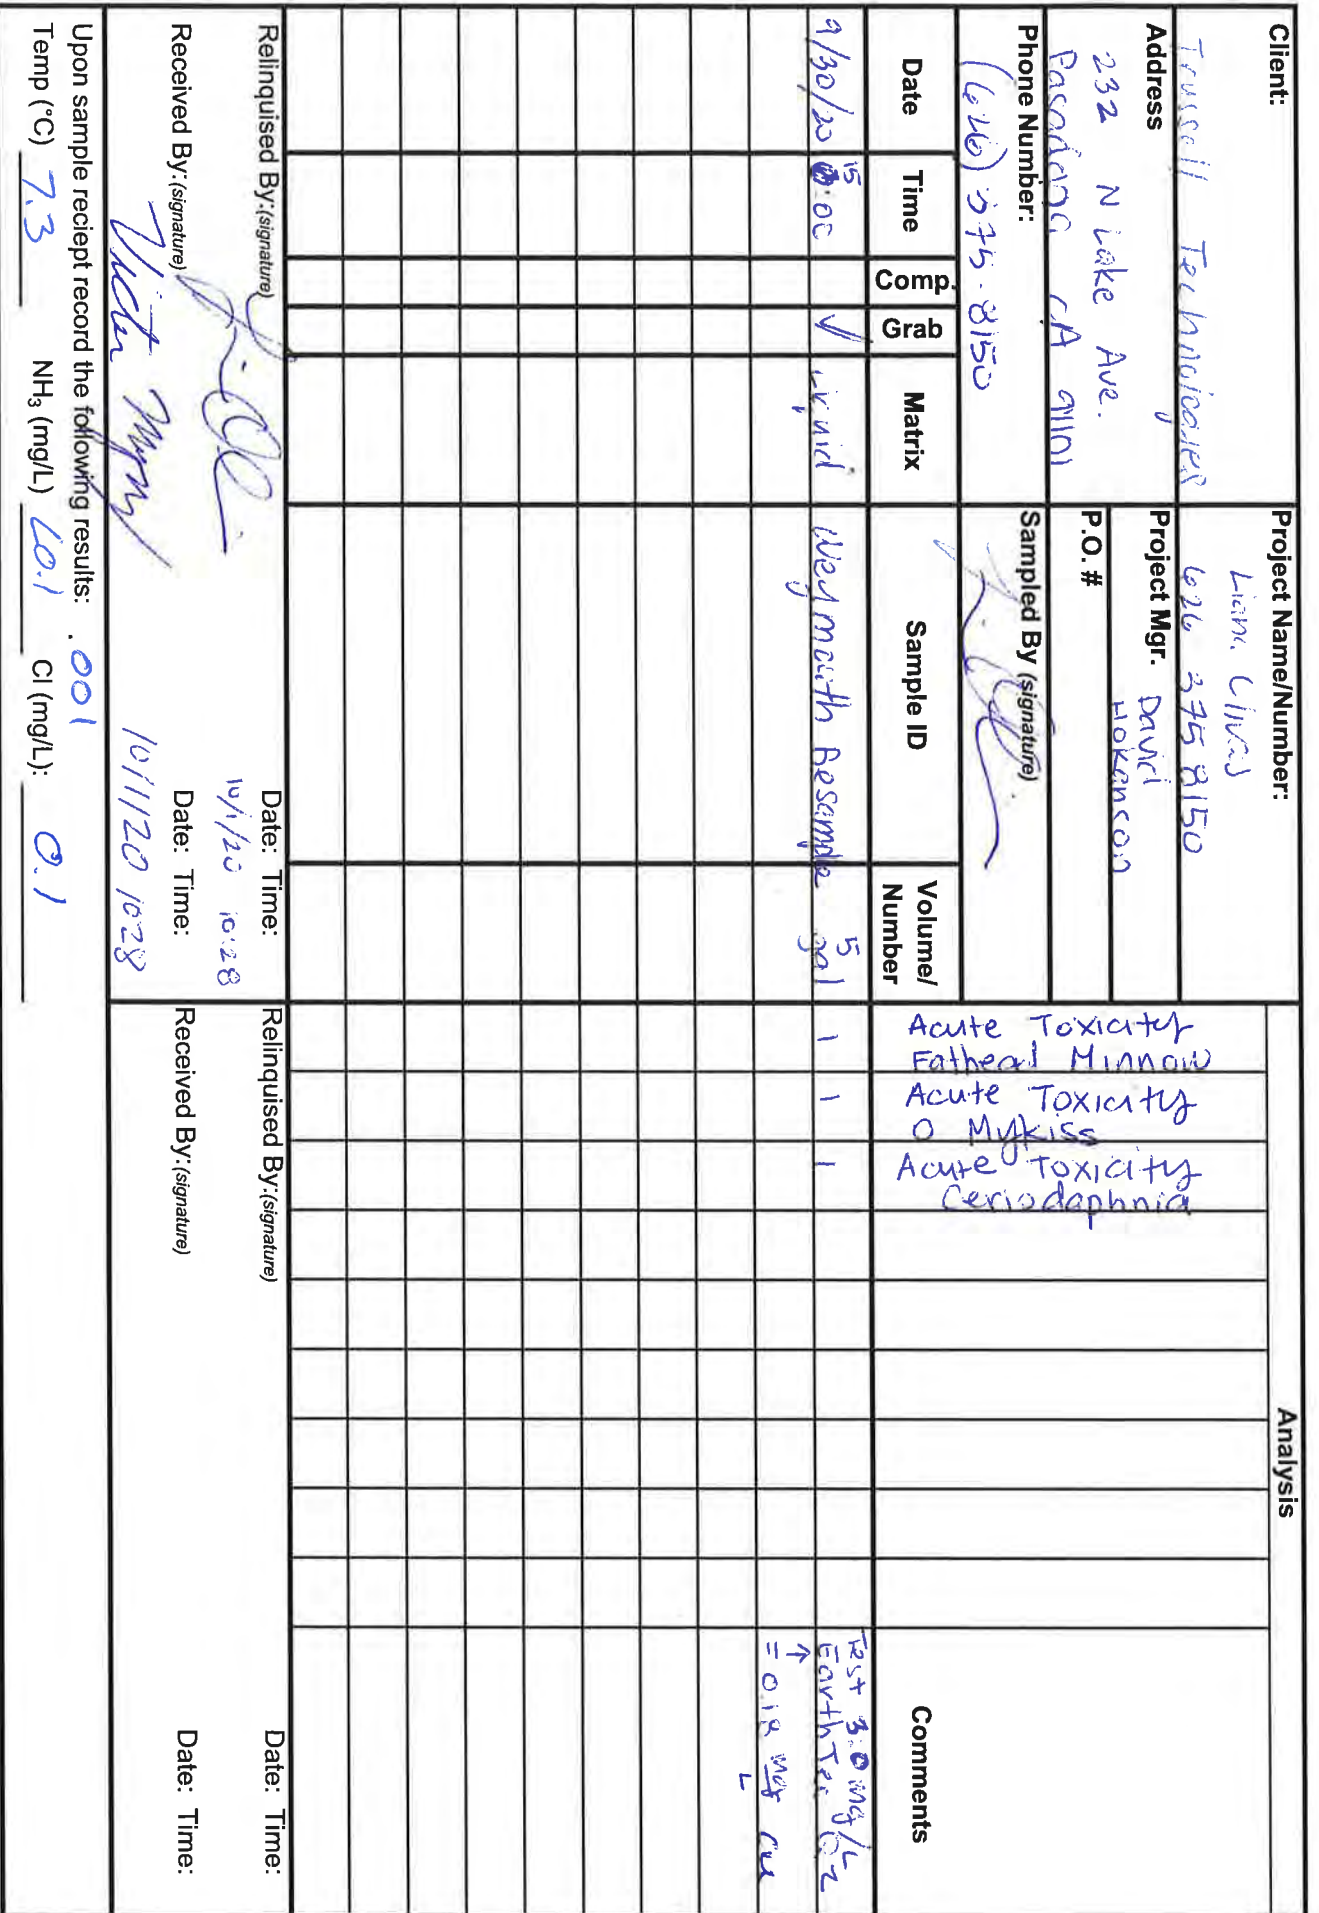 Client:
Trussell Technologies
Address
232 N Lake Ave.
Pasadena CA 91101
Phone Number:
(626) 375-8150
Project Name/Number:
626 375 8150
Project Mgr. David
Hokanson
P.O. #
Sampled By (signature)
Analysis
Date
Time
Comp.
Grab
Matrix
Sample ID
Volume/
Number
Acute Toxicity
Fathead Minnow
Acute Toxicity
O Mykiss
Acute Toxicity
Ceriodaphnia
Comments
9/30/20 15:00 √ Liquid Weymouth Resample 5 gal 1 1 1 Test 3.0 mg/L
EarthTec
= 0.18 mg/L Cu
Relinquised By:(signature) Date: Time:
10/1/20 10:28
Received By:(signature) Date: Time:
10/1/20 1028
Relinquised By:(signature) Date: Time:
Received By:(signature) Date: Time:
Upon sample reciept record the following results: .001
Temp (°C) 7.3 NH₃ (mg/L) <0.1 Cl (mg/L): 0.1